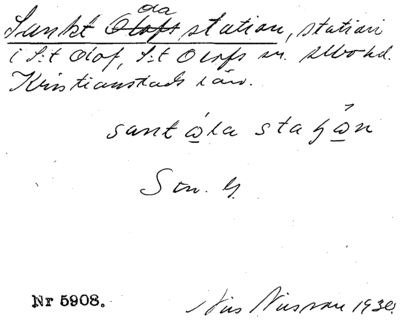 ola
Sankt Olofs station, station
i S:t Olof, S:t Olofs sn. Albo hd.
Kristianstads län.
sant ola staʃon
Nr 5908.
Nils Nilsson 1930.